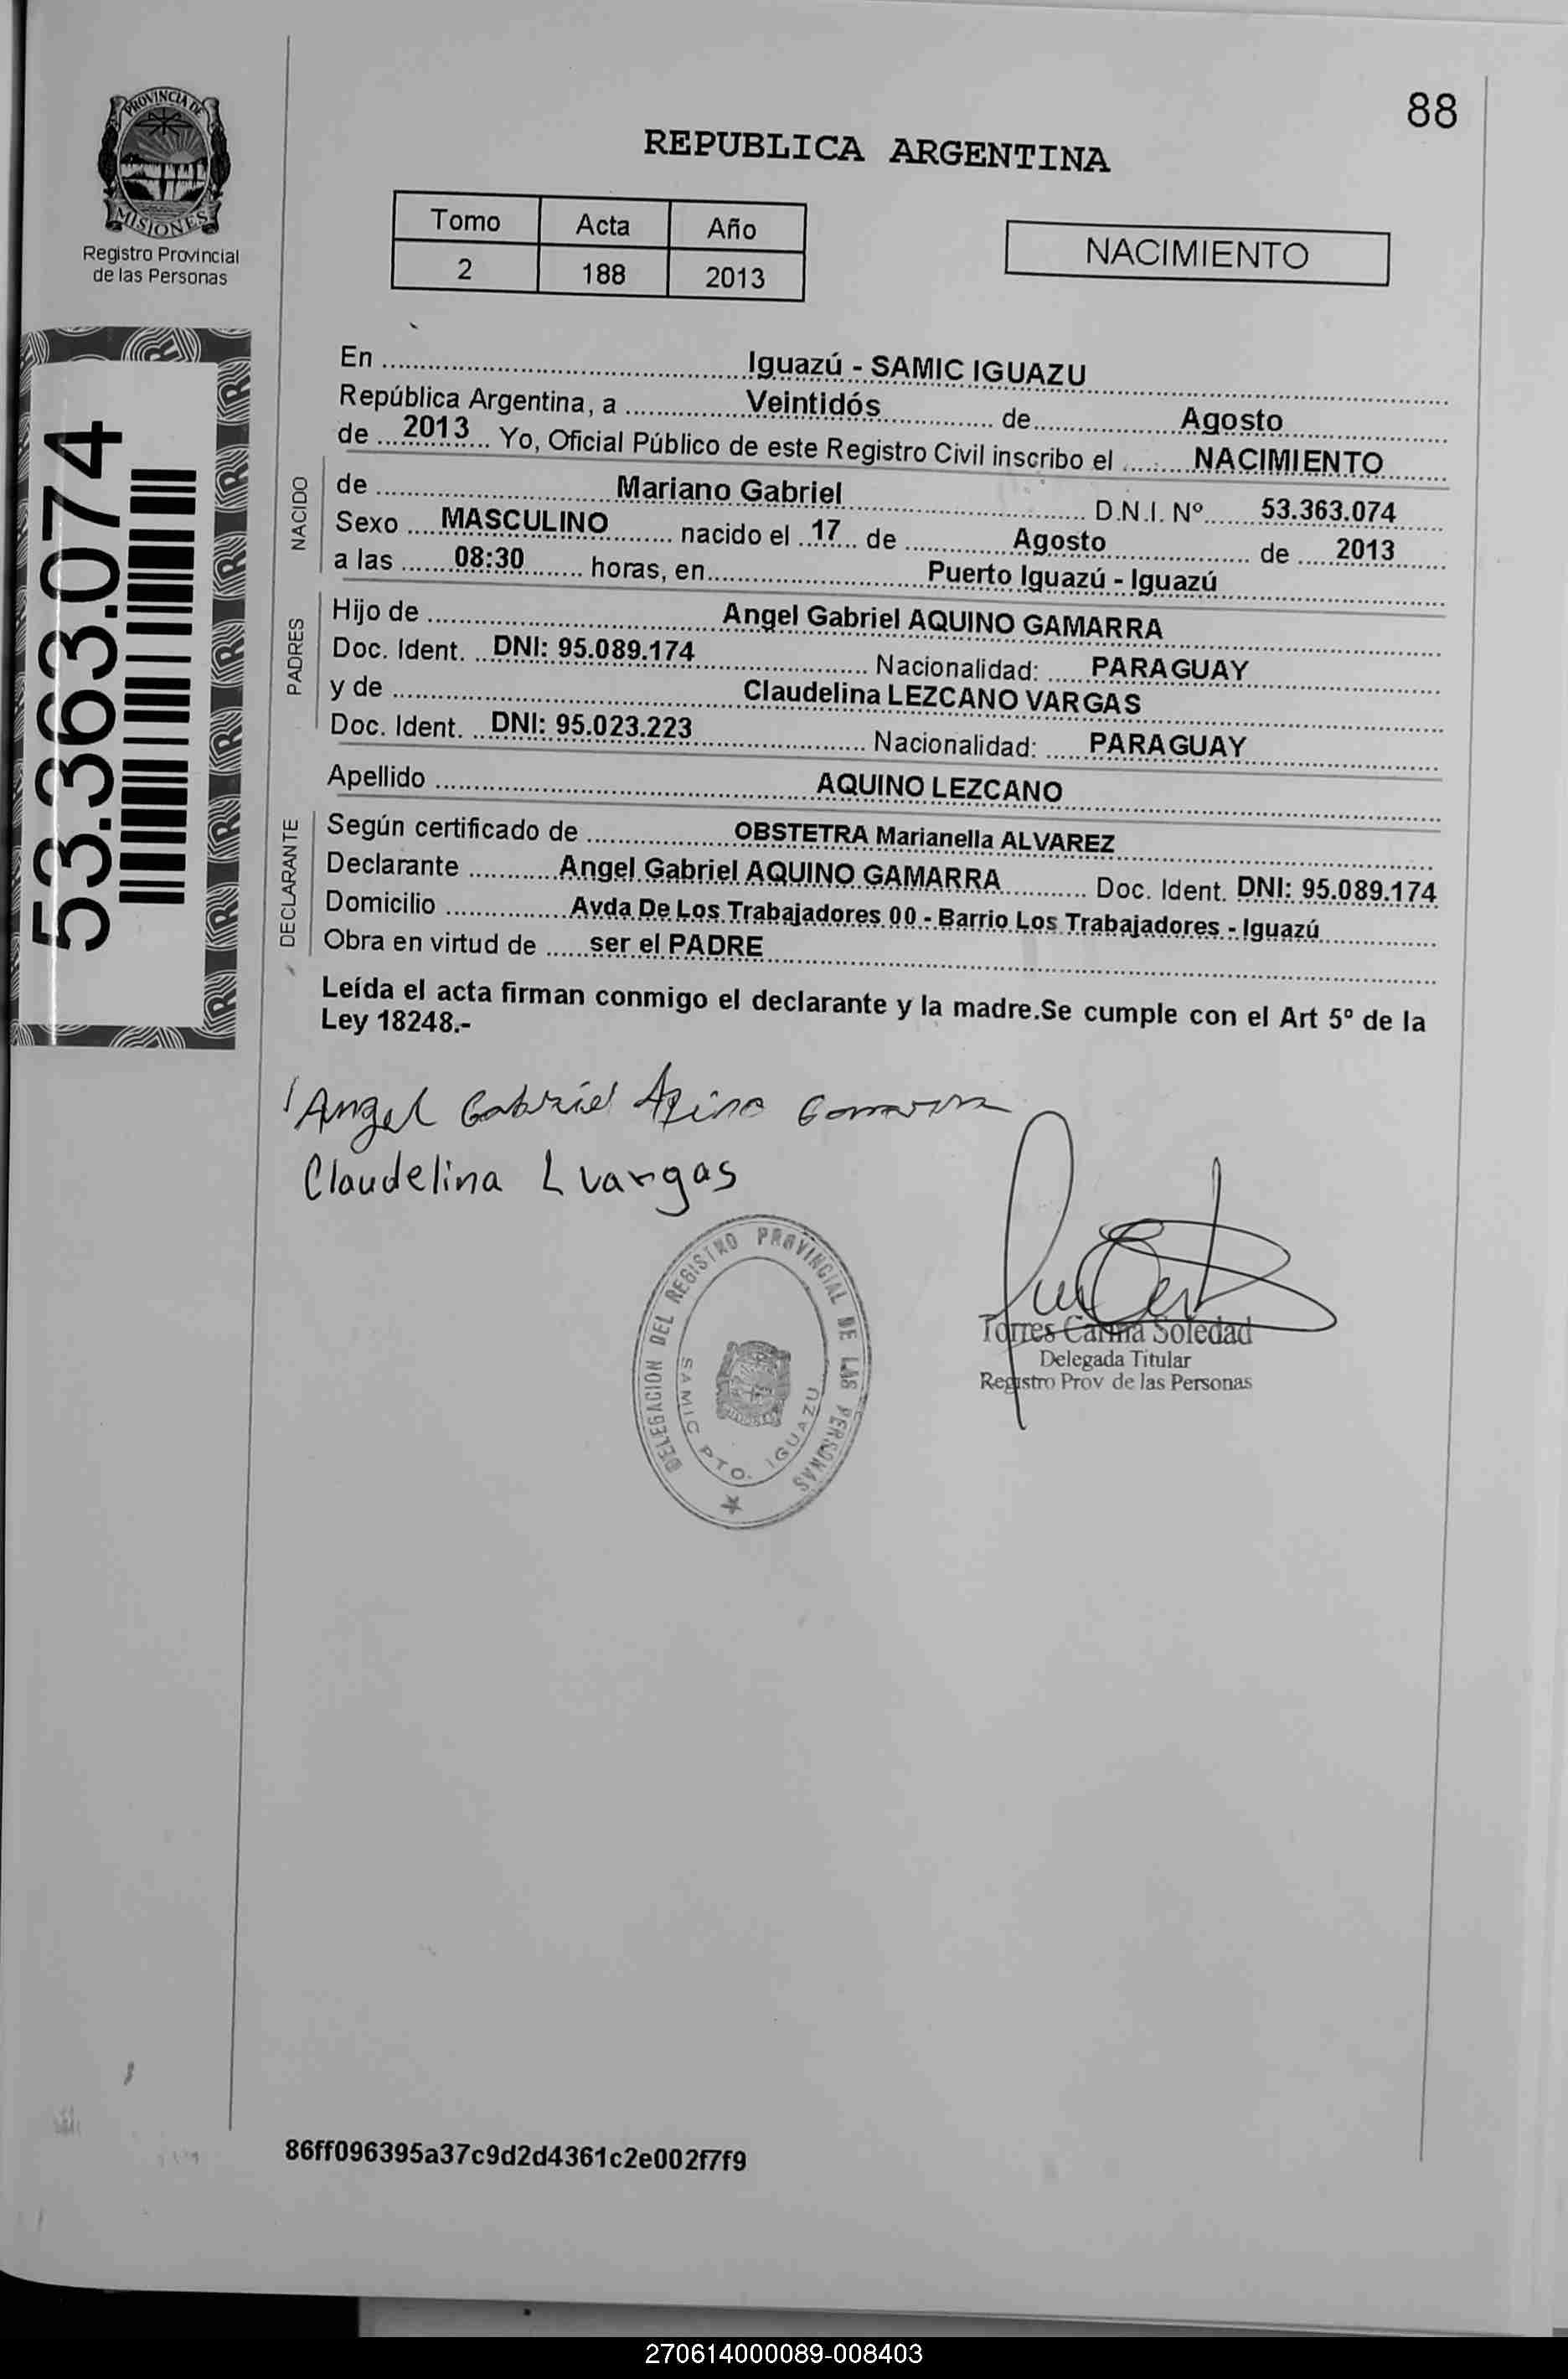 88
PROVINCIA DE
MISIONES
Registro Provincial
de las Personas
REPUBLICA ARGENTINA
Tomo Acta Año
2 188 2013
NACIMIENTO
53.363.074
En Iguazú - SAMIC IGUAZU
República Argentina, a Veintidós de Agosto
de 2013 Yo, Oficial Público de este Registro Civil inscribo el NACIMIENTO
NACIDO
de Mariano Gabriel D.N.I. Nº 53.363.074
Sexo MASCULINO nacido el 17 de Agosto de 2013
a las 08:30 horas, en Puerto Iguazú - Iguazú
PADRES
Hijo de Angel Gabriel AQUINO GAMARRA
Doc. Ident. DNI: 95.089.174 Nacionalidad: PARAGUAY
y de Claudelina LEZCANO VARGAS
Doc. Ident. DNI: 95.023.223 Nacionalidad: PARAGUAY
Apellido AQUINO LEZCANO
DECLARANTE
Según certificado de OBSTETRA Marianella ALVAREZ
Declarante Angel Gabriel AQUINO GAMARRA Doc. Ident. DNI: 95.089.174
Domicilio Avda De Los Trabajadores 00 - Barrio Los Trabajadores - Iguazú
Obra en virtud de ser el PADRE
Leída el acta firman conmigo el declarante y la madre.Se cumple con el Art 5º de la
Ley 18248.-
Angel Gabriel Aquino Gamarra
Claudelina L vargas
DELEGACION DEL REGISTRO PROVINCIAL DE LAS PERSONAS
SAMIC PTO. IGUAZU
Torres Carina Soledad
Delegada Titular
Registro Prov de las Personas
86ff096395a37c9d2d4361c2e002f7f9
270614000089-008403